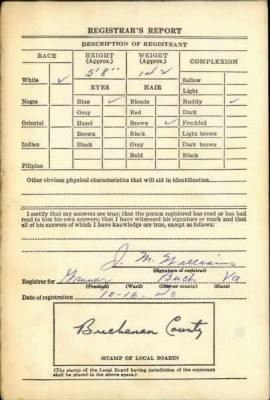 REGISTRAR'S REPORT
DESCRIPTION OF REGISTRANT
RACE HEIGHT (Approx.) WEIGHT (Approx.) COMPLEXION
5' 8"
White ✓ Sallow
EYES HAIR Light
Negro Blue ✓ Blonde Ruddy ✓
Gray Red Dark
Oriental Hazel Brown ✓ Freckled
Brown Black Light brown
Indian Black Gray Dark brown
Bald Black
Filipino
Other obvious physical characteristics that will aid in identification
I certify that my answers are true; that the person registered has read or has had
read to him his own answers; that I have witnessed his signature or mark and that
all of his answers of which I have knowledge are true, except as follows:
J. M. Williams
(Signature of registrar)
Registrar for Buch Va
(Precinct) (Ward) (City or county) (State)
Date of registration 10-16-40
Buchanan County
(STAMP OF LOCAL BOARD)
(The stamp of the Local Board having jurisdiction of the registrant
shall be placed in the above space.)